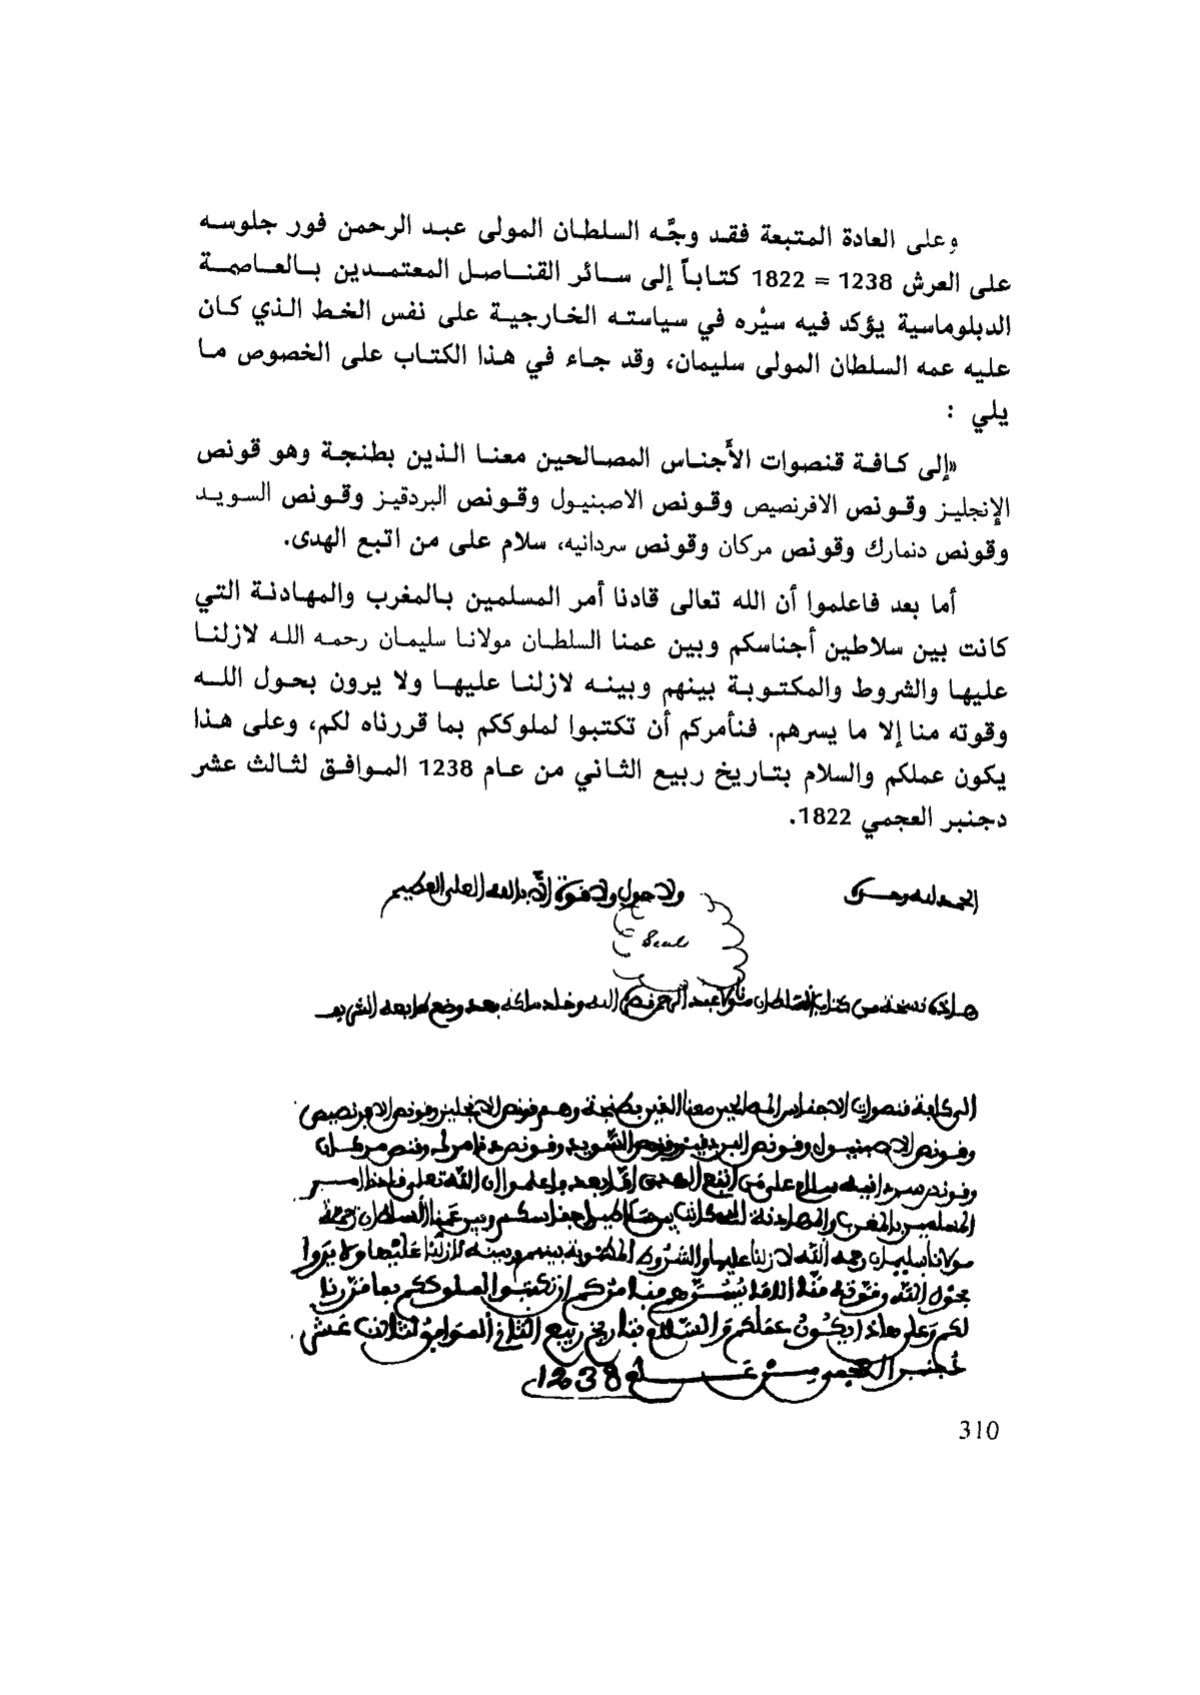 وعلى العادة المتبعة فقد وجَّه السلطان المولى عبد الرحمن فور جلوسه
على العرش 1238 = 1822 كتاباً إلى سائر القناصل المعتمدين بالعاصمة
الدبلوماسية يؤكد فيه سيْره في سياسته الخارجية على نفس الخط الذي كان
عليه عمه السلطان المولى سليمان، وقد جاء في هذا الكتاب على الخصوص ما
يلي :
«إلى كافة قنصوات الأجناس المصالحين معنا الذين بطنجة وهو قونص
الإنجليز وقونص الافرنصيص وقونص الاصبنيول وقونص البردقيز وقونص السويد
وقونص دنمارك وقونص مركان وقونص سردانيه، سلام على من اتبع الهدى.
أما بعد فاعلموا أن الله تعالى قادنا أمر المسلمين بالمغرب والمهادنة التي
كانت بين سلاطين أجناسكم وبين عمنا السلطان مولانا سليمان رحمه الله لازلنا
عليها والشروط والمكتوبة بينهم وبينه لازلنا عليها ولا يرون بحول الله
وقوته منا إلا ما يسرهم. فنأمركم أن تكتبوا لملوككم بما قررناه لكم، وعلى هذا
يكون عملكم والسلام بتاريخ ربيع الثاني من عام 1238 الموافق لثالث عشر
دجنبر العجمي 1822.
الحمد لله وحده ولا حول ولا قوة إلا بالله العلي العظيم
Seal
هاذه نسخة من كتاب السلطان مولانا عبد الرحمن نصره الله وخلد ملكه بعد وضع طابعه الشريف
الى كافة قنصوات الاجناس المصالحين معنا الذين بطنجة وهم قونص الانجليز وقونص الافرنصيص
وقونص الاصبنيول وقونص البردقيز وقونص السويد وقونص دنامرك وقنص مركان
وقونص سردانيه سلام على من اتبع الهدى اما بعد فاعلموا ان الله تعلى قلدنا امر
المسلمين بالمغرب والمهادنة التي كانت بين سلاطين اجناسكم وبين عمنا السلطان
مولانا سليمان رحمه الله لا زلنا عليها والشروط المكتوبة بينهم وبينه لازلنا عليها ولا يروا
بحول الله وقوته منا الا ما يسرهم فنامركم ان تكتبوا لملوككم بما قررنا
لكم وعلى هاذا يكون عملكم والسلام بتاريخ ربيع الثاني الموافق لثالث عشر
دجنبر العجمي من عام 1238
310